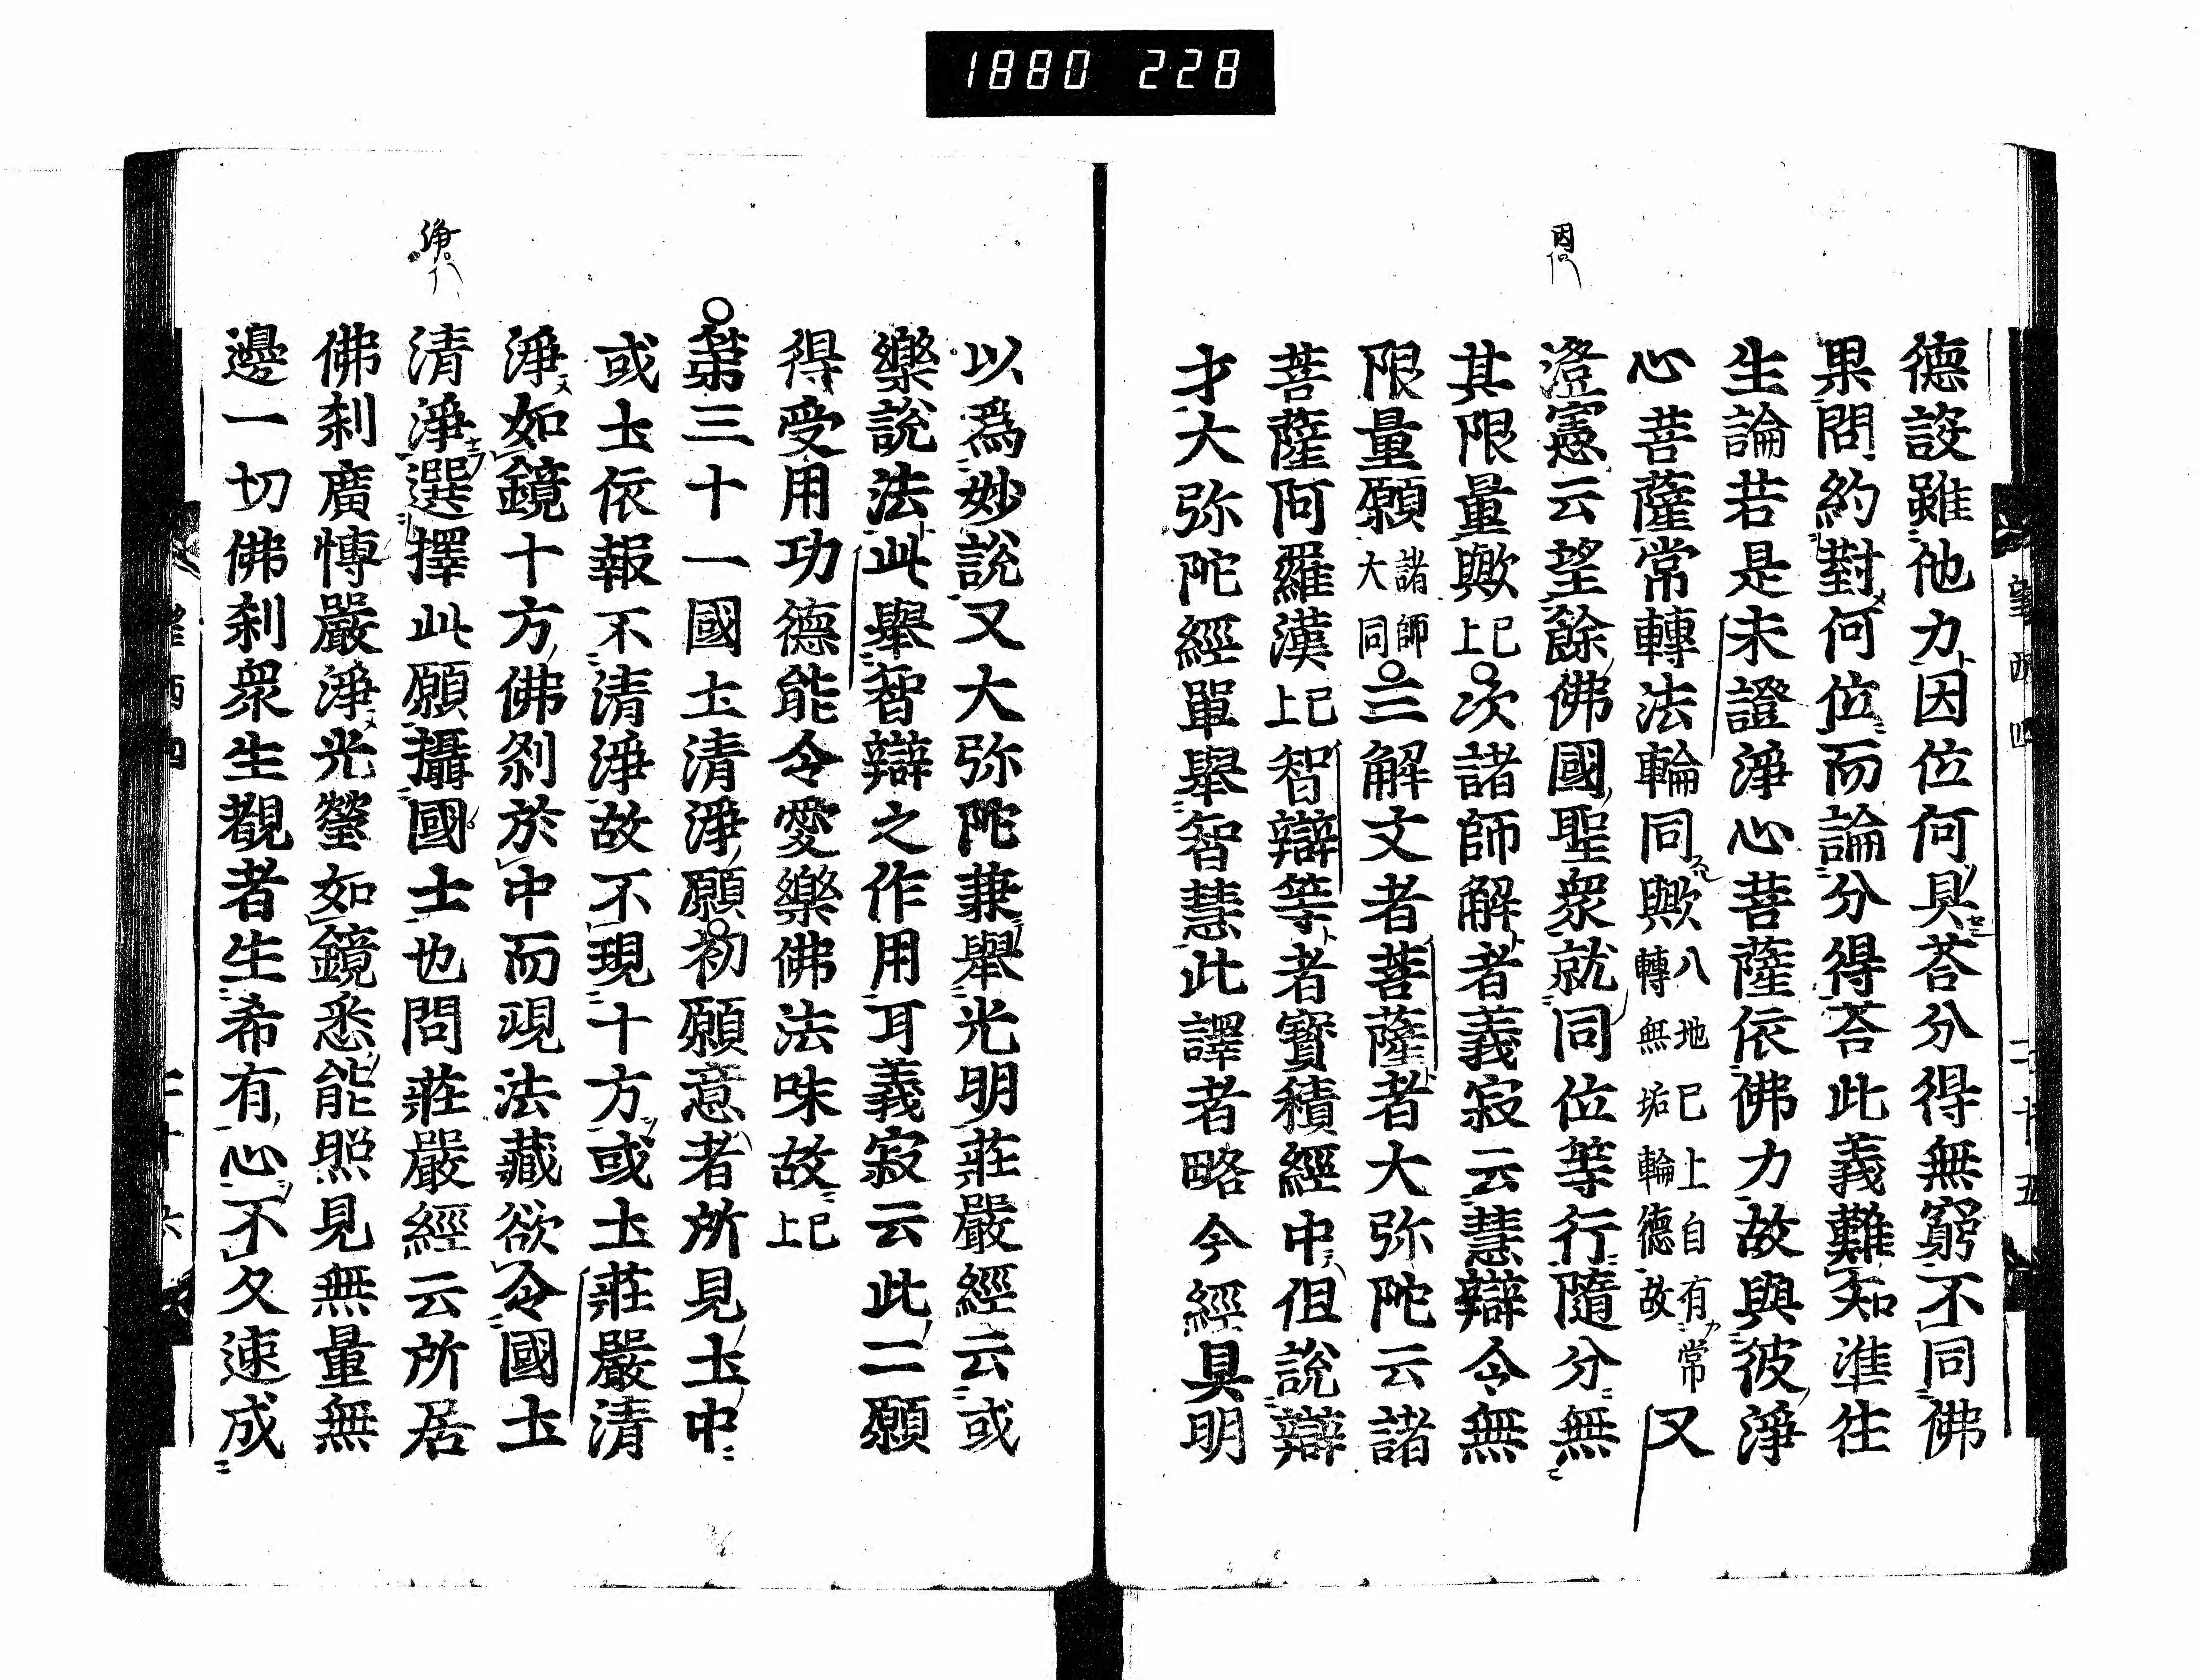 1880 228
德設雖他力因位何具荅分得無窮不同佛
果問約對何位而論分得荅此義難知准徃
生論若是未證淨心菩薩依佛力故與彼淨
心菩薩常轉法輪同歟八地已上自有常轉無垢輪德故又
澄憲云望餘佛國聖衆就同位等行隨分無
其限量歟已上次諸師解者義寂云慧辯令無
限量願諸師大同三解文者菩薩者大弥陀云諸
菩薩阿羅漢已上智辯等者寶積經中但說辯
才大弥陀經單舉智慧此譯者略今經具明
以爲妙說又大弥陀兼舉光明莊嚴經云或
樂說法此舉智辯之作用耳義寂云此二願
得受用功德能令愛樂佛法味故已上
第三十一國圡清淨願初願意者所見圡中
或圡依報不清淨故不現十方或圡莊嚴清
淨如鏡十方佛刹於中而現法藏欲令國圡
清淨選擇此願攝國士也問莊嚴經云所居
佛刹廣愽嚴淨光瑩如鏡悉能照見無量無
邊一切佛刹衆生覩者生希有心不久速成
望西四
二十五